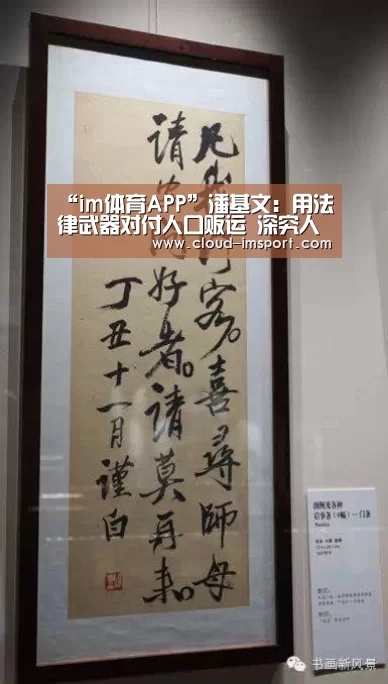 “im体育APP”潘基文：用法
律武器对付人口贩运 深究人
www.cloud-imsport.com
凡我門客。喜尋師母
請好者。請莫再来。
丁丑十一月謹白
润例及各种
启事条（9幅）—门条
书画新风景